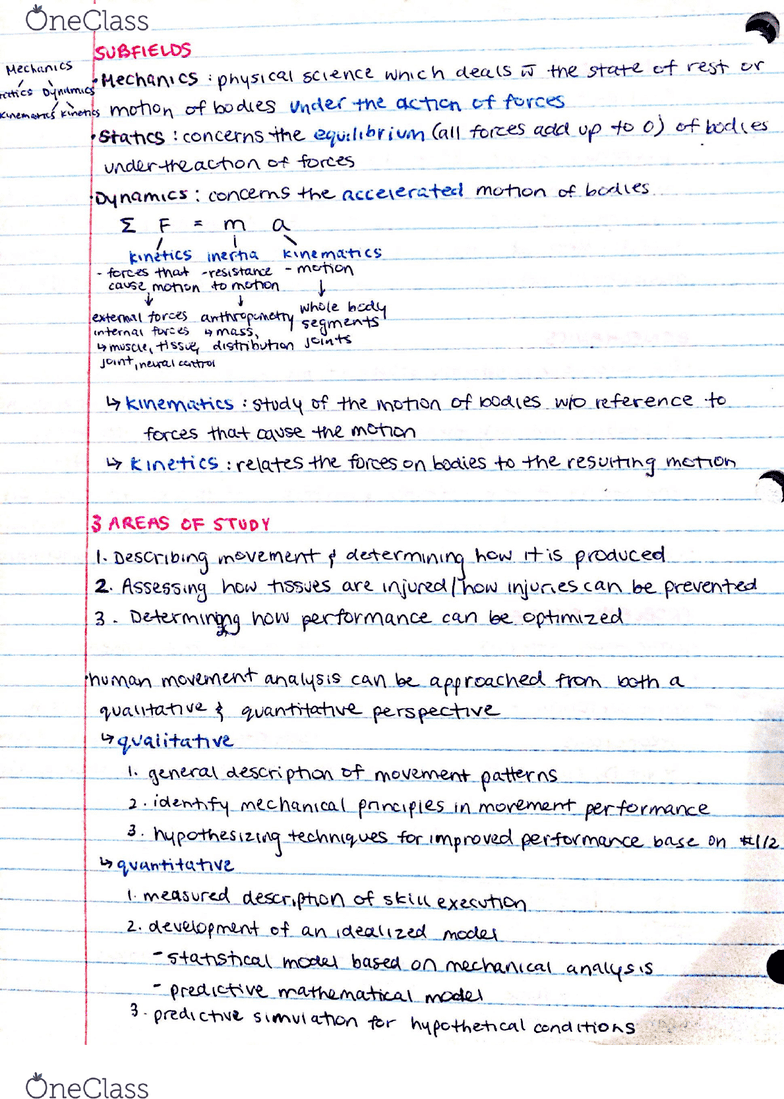 OneClass
SUBFIELDS
Mechanics
Dynamics
kinematics kinetics
• Mechanics : physical science which deals w the state of rest or
motion of bodies under the action of forces
• Statics : concerns the equilibrium (all forces add up to 0) of bodies
under the action of forces
• Dynamics : concerns the accelerated motion of bodies
Σ F = m a
kinetics inertia kinematics
- forces that - resistance - motion
cause motion to motion
↓ ↓ ↓
external forces anthropometry whole body
internal forces ↳ mass, segments
↳ muscle, tissue, distribution joints
joint, neural control
↳ kinematics : study of the motion of bodies w/o reference to
forces that cause the motion
↳ kinetics : relates the forces on bodies to the resulting motion
3 AREAS OF STUDY
1. Describing movement & determining how it is produced
2. Assessing how tissues are injured/how injuries can be prevented
3. Determining how performance can be optimized
• human movement analysis can be approached from both a
qualitative & quantitative perspective
↳ qualitative
1. general description of movement patterns
2. identify mechanical principles in movement performance
3. hypothesizing techniques for improved performance base on #1/2
↳ quantitative
1. measured description of skill execution
2. development of an idealized model
- statistical model based on mechanical analysis
- predictive mathematical model
3. predictive simulation for hypothetical conditions
OneClass